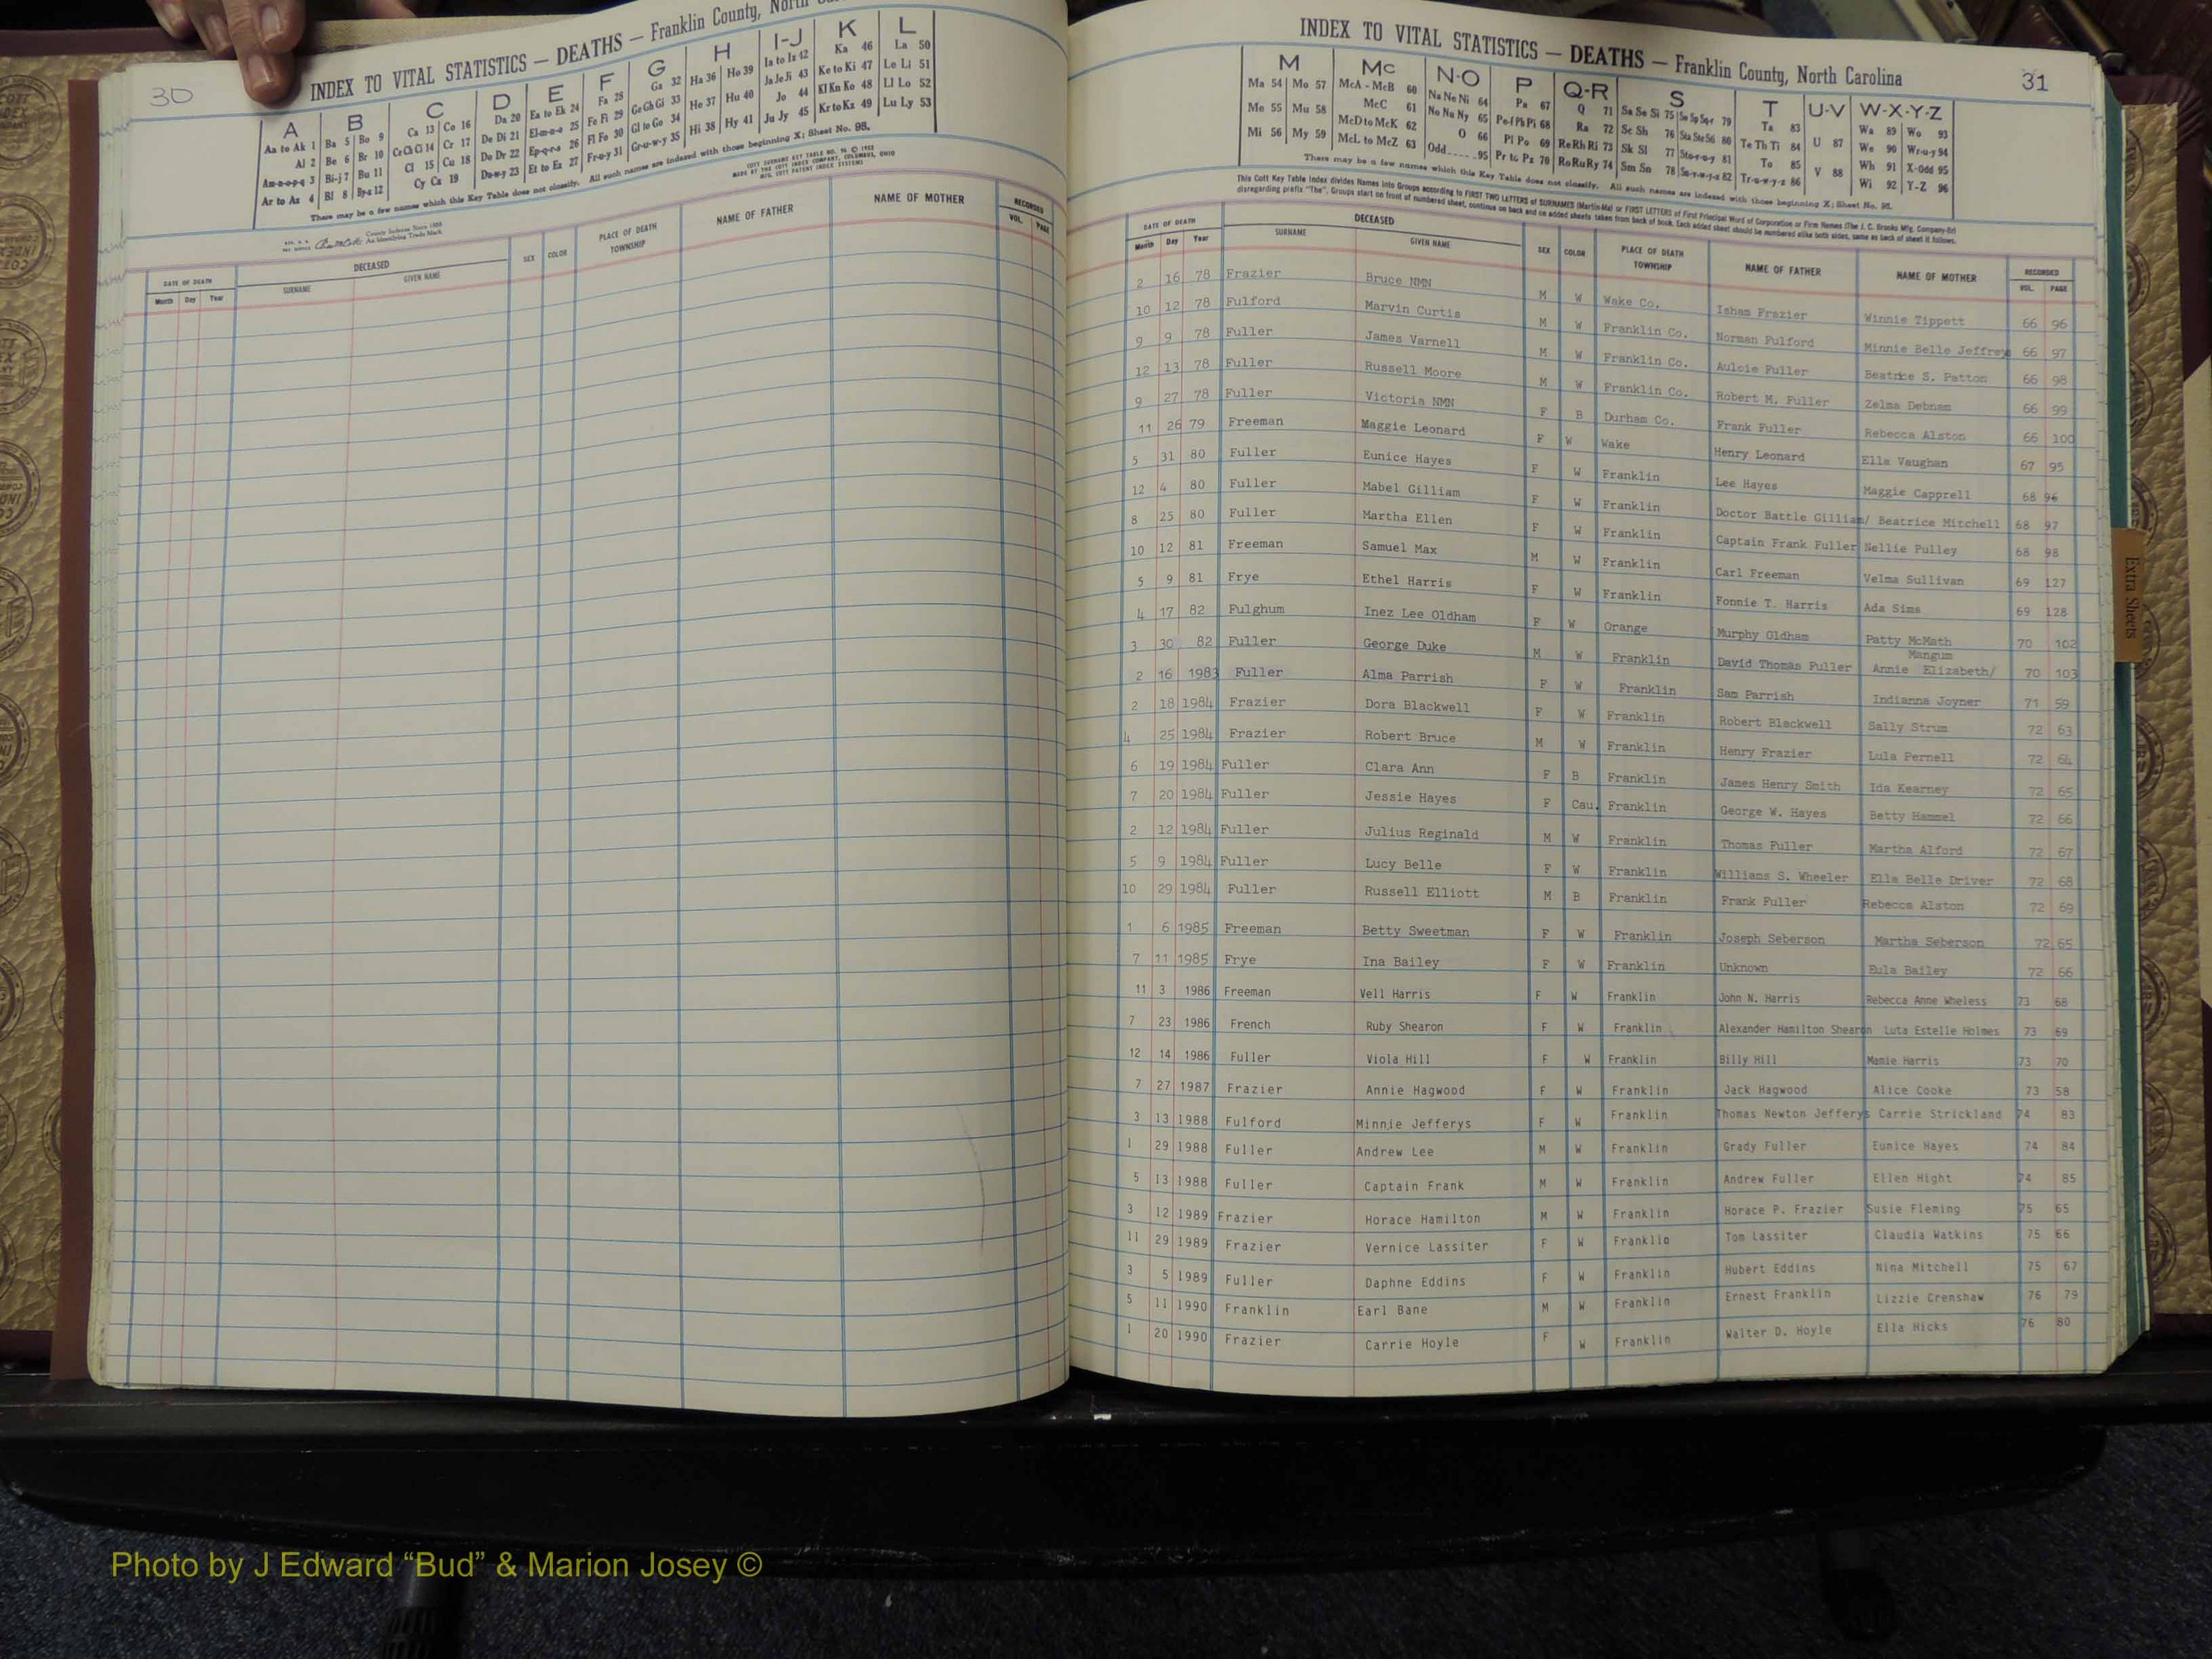 30
INDEX TO VITAL STATISTICS — DEATHS — Franklin County, North
A B C D E F G H I-J K L
Aa to Ak 1 Ba 5 Bo 9 Ca 13 Co 16 Da 20 Ea to Ek 24 Fa 28 Ga 32 Ha 36 Ho 39 Ia to Iz 42 Ka 46 La 50
Al 2 Be 6 Br 10 Cr 17 De Di 21 El-m-n-o 25 Fe Fi 29 Ge Gh Gi 33 He 37 Hu 40 Ja Je Ji 43 Ke to Ki 47 Le Li 51
Am-n-o-p-q 3 Bi-j 7 Bu 11 Cl 15 Cu 18 Do Dr 22 Ep-q-r-s 26 Fl Fo 30 Gl to Go 34 Hi 38 Hy 41 Jo 44 Kl Kn Ko 48 Ll Lo 52
Ar to Az 4 Bl 8 By-z 12 Cy Cz 19 Du-w-y 23 Et to Ez 27 Fr-u-y 31 Gr-u-w-y 35 Ju Jy 45 Kr to Kz 49 Lu Ly 53
There may be a few names which this Key Table does not classify. All such names are indexed with those beginning X; Sheet No. 95.
DATE OF DEATH DECEASED SEX COLOR PLACE OF DEATH TOWNSHIP NAME OF FATHER NAME OF MOTHER RECORDED
Month Day Year SURNAME GIVEN NAME VOL. PAGE
INDEX TO VITAL STATISTICS — DEATHS — Franklin County, North Carolina
31
M Mc N-O P Q-R S T U-V W-X-Y-Z
Ma 54 Mo 57 McA - McB 60 Na Ne Ni 64 Pa 67 Q 71 Sa Se Si 75 79 Ta 83 U 87 Wa 89 Wo 93
Me 55 Mu 58 McC 61 No Nu Ny 65 Pe-f Ph Pi 68 Ra 72 Sc Sh 76 Sta Ste S6 80 Te Th Ti 84 V 88 We 90 Wr-u-y 94
Mi 56 My 59 McD to McK 62 O 66 Pl Po 69 Re Rh Ri 73 Sk Sl 77 Sto-r-u-y 81 To 85 Wh 91 X-Odd 95
McL to McZ 63 Odd 95 Pr to Pz 70 Ro Ru Ry 74 Sm Sn 78 Su-v-w-y-z 82 Tr-u-w-y-z 86 Wi 92 Y-Z 96
There may be a few names which this Key Table does not classify. All such names are indexed with those beginning X; Sheet No. 95.
This Cott Key Table Index divides Names into Groups according to FIRST TWO LETTERS of SURNAMES (Martin-Ma) or FIRST LETTERS of First Principal Word of Corporation or Firm Names (The J. C. Brooks Mfg. Company-Br)
disregarding prefix "The". Groups start on front of numbered sheet, continue on back and on added sheets taken from back of book. Each added sheet should be numbered alike both sides, same as back of sheet it follows.
DATE OF DEATH DECEASED SEX COLOR PLACE OF DEATH TOWNSHIP NAME OF FATHER NAME OF MOTHER RECORDED
Month Day Year SURNAME GIVEN NAME VOL. PAGE
2 16 78 Frazier Bruce NMN M W Wake Co. Isham Frazier Winnie Tippett 66 96
10 12 78 Fulford Marvin Curtis M W Franklin Co. Norman Fulford Minnie Belle Jeffreys 66 97
9 9 78 Fuller James Varnell M W Franklin Co. Aulcie Fuller Beatrice S. Patton 66 98
12 13 78 Fuller Russell Moore M W Franklin Co. Robert M. Fuller Zelma Debnam 66 99
9 27 78 Fuller Victoria NMN F B Durham Co. Frank Fuller Rebecca Alston 66 100
11 26 79 Freeman Maggie Leonard F W Wake Henry Leonard Ella Vaughan 67 95
5 31 80 Fuller Eunice Hayes F W Franklin Lee Hayes Maggie Capprell 68 96
12 4 80 Fuller Mabel Gilliam F W Franklin Doctor Battle Gilliam/ Beatrice Mitchell 68 97
8 25 80 Fuller Martha Ellen F W Franklin Captain Frank Fuller Nellie Pulley 68 98
10 12 81 Freeman Samuel Max M W Franklin Carl Freeman Velma Sullivan 69 127
5 9 81 Frye Ethel Harris F W Franklin Fonnie T. Harris Ada Sims 69 128
4 17 82 Fulghum Inez Lee Oldham F W Orange Murphy Oldham Patty McMath 70 102
Mangum
3 30 82 Fuller George Duke M W Franklin David Thomas Fuller Annie Elizabeth/ 70 103
2 16 1983 Fuller Alma Parrish F W Franklin Sam Parrish Indianna Joyner 71 59
2 18 1984 Frazier Dora Blackwell F W Franklin Robert Blackwell Sally Strum 72 63
4 25 1984 Frazier Robert Bruce M W Franklin Henry Frazier Lula Pernell 72 64
6 19 1984 Fuller Clara Ann F B Franklin James Henry Smith Ida Kearney 72 65
7 20 1984 Fuller Jessie Hayes F Cau. Franklin George W. Hayes Betty Hammel 72 66
2 12 1984 Fuller Julius Reginald M W Franklin Thomas Fuller Martha Alford 72 67
5 9 1984 Fuller Lucy Belle F W Franklin Williams S. Wheeler Ella Belle Driver 72 68
10 29 1984 Fuller Russell Elliott M B Franklin Frank Fuller Rebecca Alston 72 69
1 6 1985 Freeman Betty Sweetman F W Franklin Joseph Seberson Martha Seberson 72 65
7 11 1985 Frye Ina Bailey F W Franklin Unknown Eula Bailey 72 66
11 3 1986 Freeman Vell Harris F W Franklin John N. Harris Rebecca Anne Wheless 73 68
7 23 1986 French Ruby Shearon F W Franklin Alexander Hamilton Shearon Luta Estelle Holmes 73 69
12 14 1986 Fuller Viola Hill F W Franklin Billy Hill Mamie Harris 73 70
7 27 1987 Frazier Annie Hagwood F W Franklin Jack Hagwood Alice Cooke 73 58
3 13 1988 Fulford Minnie Jefferys F W Franklin Thomas Newton Jefferys Carrie Strickland 74 83
1 29 1988 Fuller Andrew Lee M W Franklin Grady Fuller Eunice Hayes 74 84
5 13 1988 Fuller Captain Frank M W Franklin Andrew Fuller Ellen Hight 74 85
3 12 1989 Frazier Horace Hamilton M W Franklin Horace P. Frazier Susie Fleming 75 65
11 29 1989 Frazier Vernice Lassiter F W Franklio Tom Lassiter Claudia Watkins 75 66
3 5 1989 Fuller Daphne Eddins F W Franklin Hubert Eddins Nina Mitchell 75 67
5 11 1990 Franklin Earl Bane M W Franklin Ernest Franklin Lizzie Crenshaw 76 79
1 20 1990 Frazier Carrie Hoyle F W Franklin Walter D. Hoyle Ella Hicks 76 80
Extra Sheets
Photo by J Edward “Bud” & Marion Josey ©